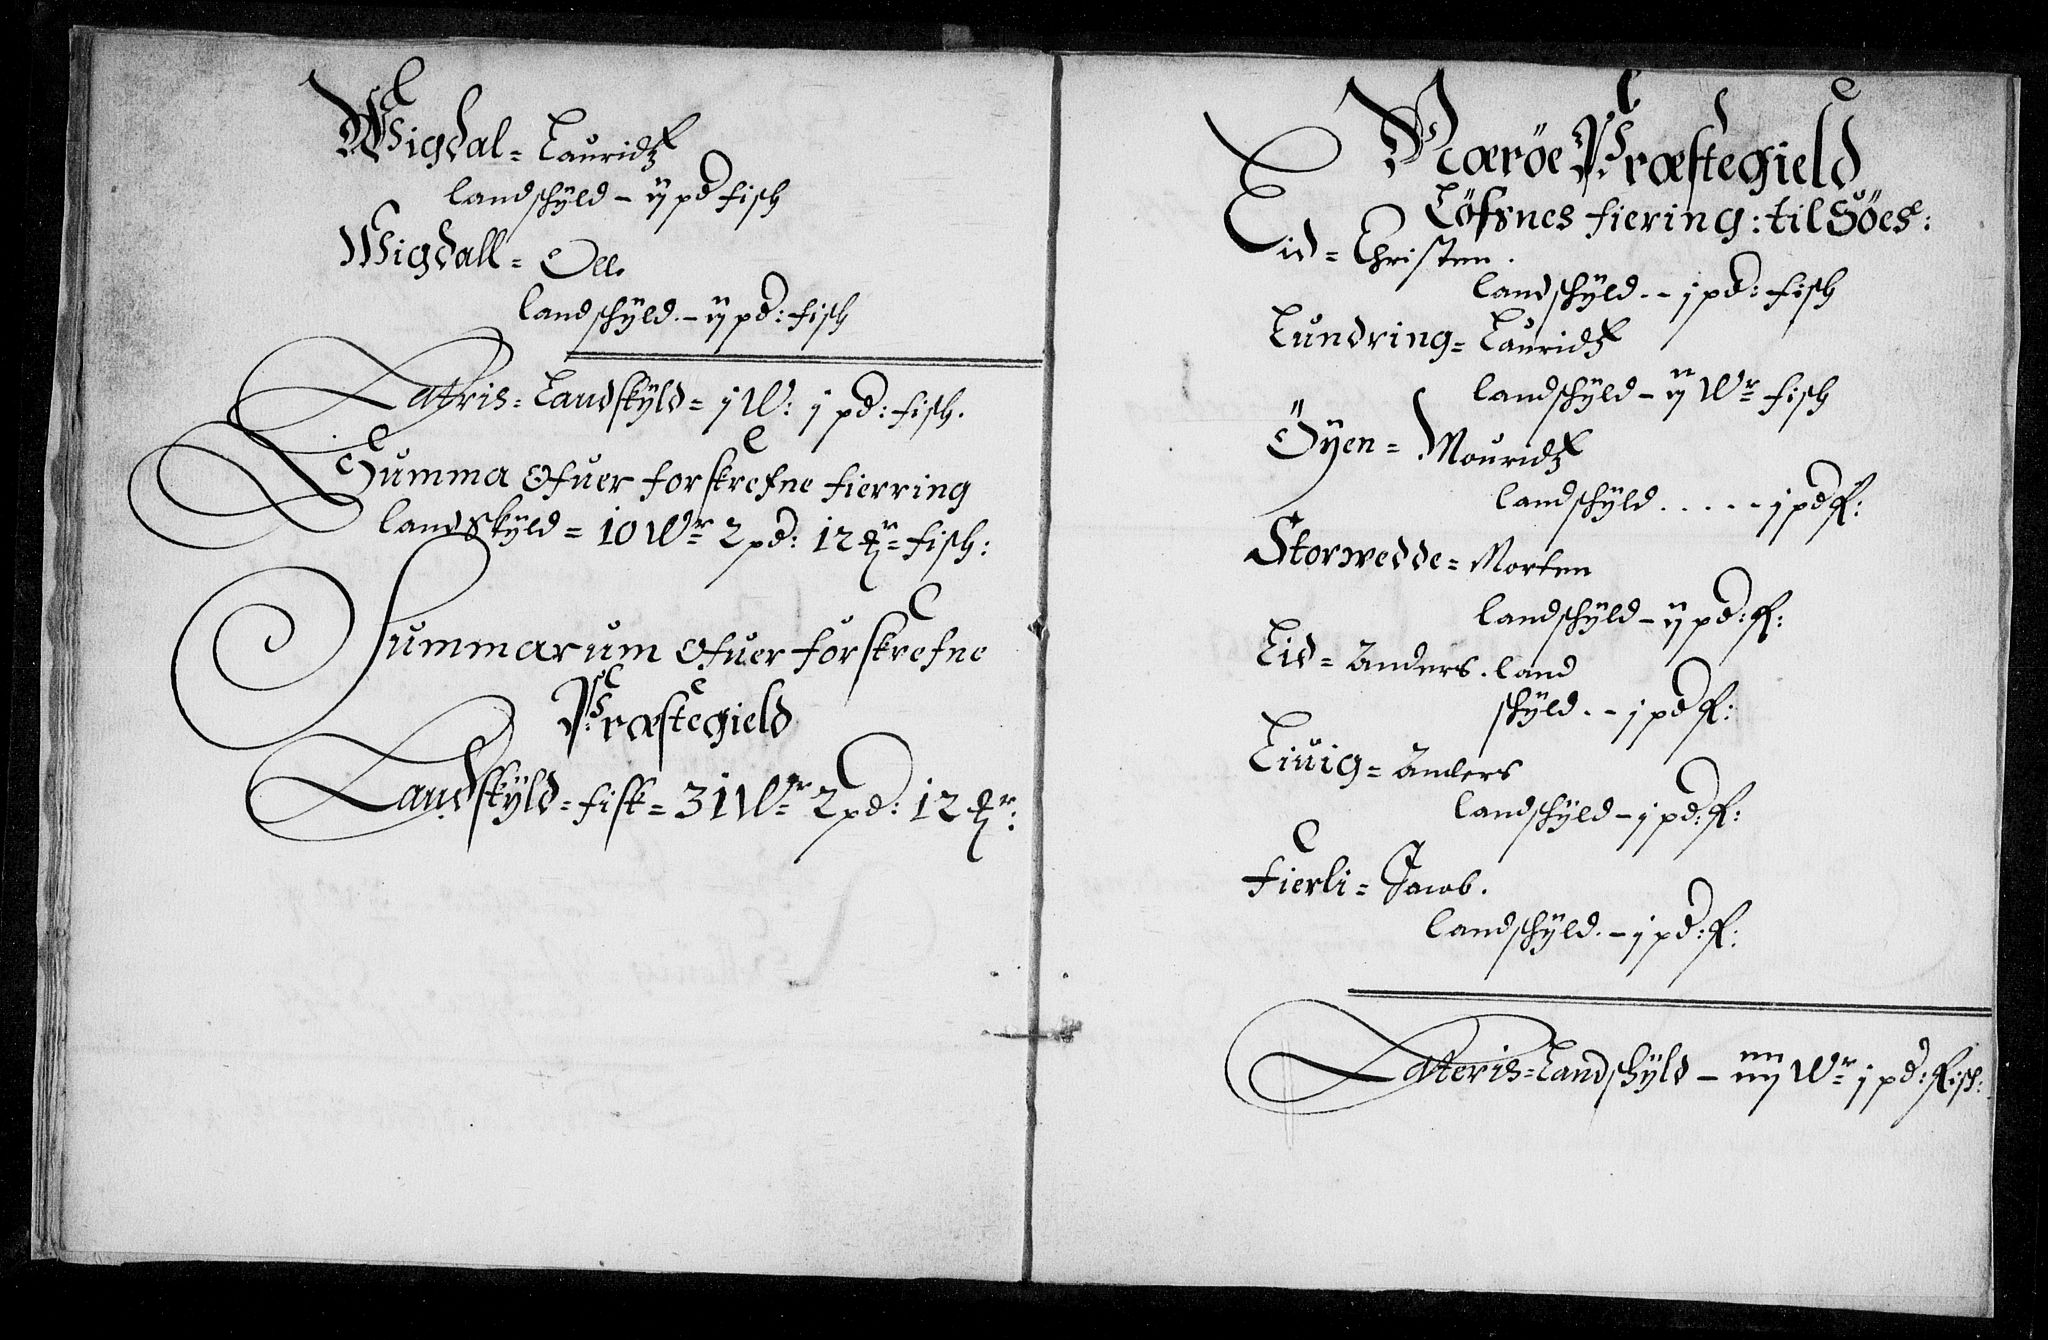 Wigdal = Lauridtz
landschÿld - ij pd fisch
Wigdall = Olle
landschÿld. - ij pd: fisch
Lateris = Landskÿld = j W: j pd: fisch.
Summa Ofuer forskrefne fierring
landskÿld = 10 Wr 2 pd: 12 mr = fisch:
Summarum Ofuer forskrefne
Præstegield
Landskÿld = fisk = 31 Wr 2 pd: 12 mr:
Nærøe Præstegield
Löfsnes fiering: til Söes:
Eid = Christen.
landschÿld. - j pd: fisch
Lundring = Lauridtz
landschÿld - ij Wr fisch
Öyen = Mouridtz
landschÿld ..... j pd f:
Storwedde = Morten
landschÿld - ij pd: f:
Eid = Anders. land
schÿld. - j pd f:
Liuig = Anders
landschÿld - j pd: f:
Fierli = Jacob.
landschÿld. - j pd: f:
Lateris = Landschÿld - iiij Wr j pd: fisch: